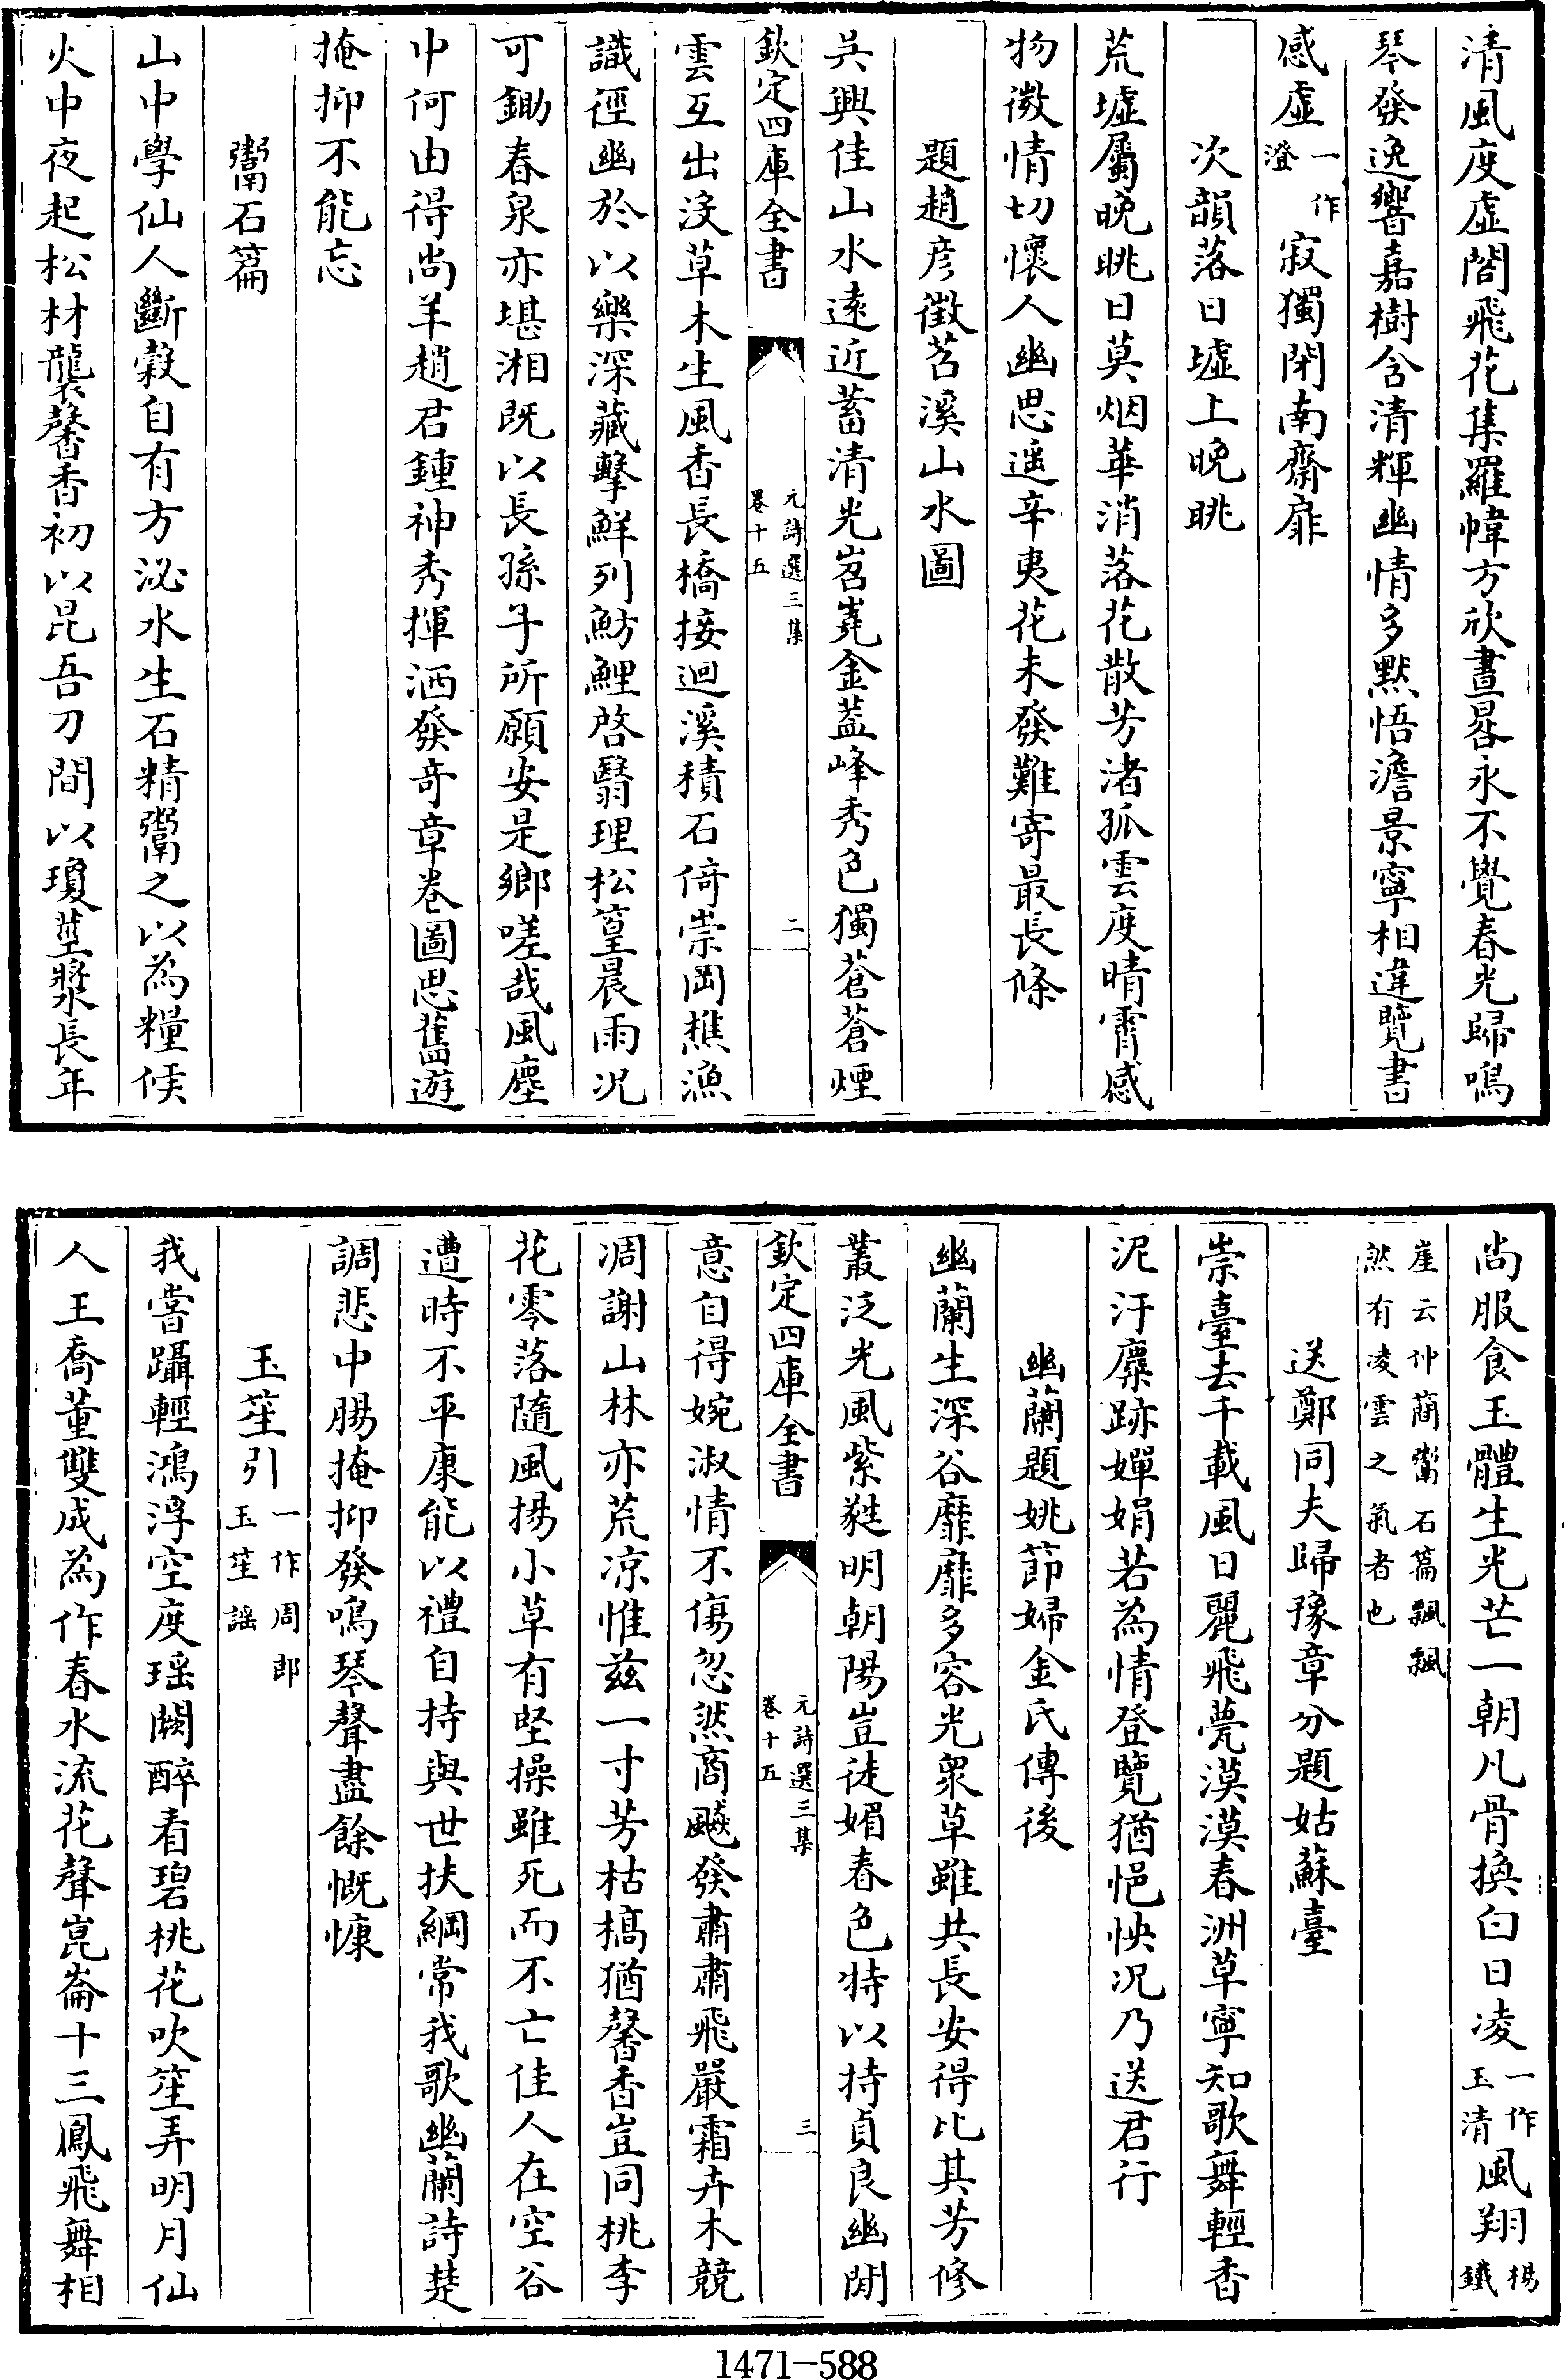 清風度虛閤飛花集羅幃方欣晝晷永不覺春光歸鳴
琴發逸響嘉樹含清輝幽情多默悟澹景寧相違覽書
感虛一作澄寂獨閉南齋扉
次韻落日墟上晚眺
荒墟屬晚眺日莫烟華消落花散芳渚孤雲度晴霄感
物微情切懷人幽思遥辛夷花未發難寄最長條
題趙彥徵苕溪山水圖
吳興佳山水遠近蓄清光岧嶤金蓋峰秀色獨蒼蒼煙
欽定四庫全書
元詩選三集
卷十五
二
雲互出没草木生風香長橋接迴溪積石倚崇岡樵漁
識徑幽於以樂深藏擊鮮列魴鯉啓翳理松篁晨雨况
可鋤春泉亦堪湘既以長孫子所願安是鄉嗟哉風塵
中何由得尚羊趙君鍾神秀揮洒發奇章卷圖思舊遊
掩抑不能忘
鬻石篇
山中學仙人斷穀自有方泌水生石精鬻之以為糧候
火中夜起松材襲馨香初以昆吾刀間以瓊莖漿長年
尚服食玉體生光芒一朝凡骨換白日凌一作玉清風翔楊鐵
崖云仲簡鬻石篇飄飄
然有凌雲之氣者也
送鄭同夫歸豫章分題姑蘇臺
崇臺去千載風日麗飛甍漠漠春洲草寧知歌舞輕香
泥汙麋跡嬋娟若為情登覽猶悒怏况乃送君行
幽蘭題姚節婦金氏傳後
幽蘭生深谷靡靡多容光衆草雖共長安得比其芳修
叢泛光風紫蕤明朝陽豈徒媚春色特以持貞良幽閒
欽定四庫全書
元詩選三集
卷十五
三
意自得婉淑情不傷忽然商飇發肅肅飛嚴霜卉木競
凋謝山林亦荒凉惟兹一寸芳枯槁猶馨香豈同桃李
花零落隨風揚小草有堅操雖死而不亡佳人在空谷
遭時不平康能以禮自持與世扶綱常我歌幽蘭詩楚
調悲中腸掩抑發鳴琴聲盡餘慨慷
玉笙引一作周郎玉笙謡
我嘗躡輕鴻浮空度瑶闕醉看碧桃花吹笙弄明月仙
人王喬董雙成為作春水流花聲崑崙十三鳳飛舞相
1471—588